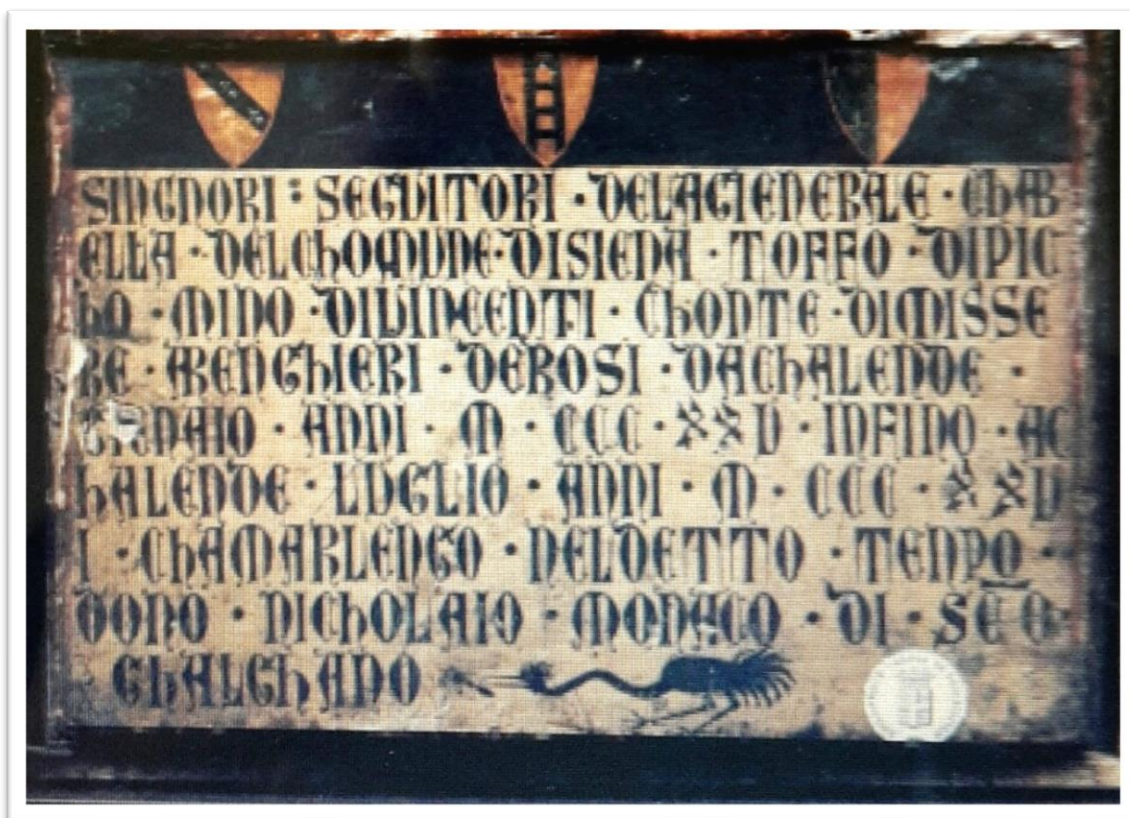 SINGNORI : SEGUITORI · DELAGIENERALE · CHAB
ELLA · DELCHOMUNE · DISIENA · TOFFO · DIPIC
HO · MINO · DIVINCENTI · CHONTE · DIMISSE
RE · RENGHIERI · DEROSI · DACHALENDE ·
GIENAIO · ANNI · M · CCC · XXV · INFINO · AC
HALENDE · LUGLIO · ANNI · M · CCC · XXV
I · CHAMARLENGO · NELDETTO · TENPO ·
DONO · NICHOLAIO · MONACO · DI · SĒ O
GHALGHANO